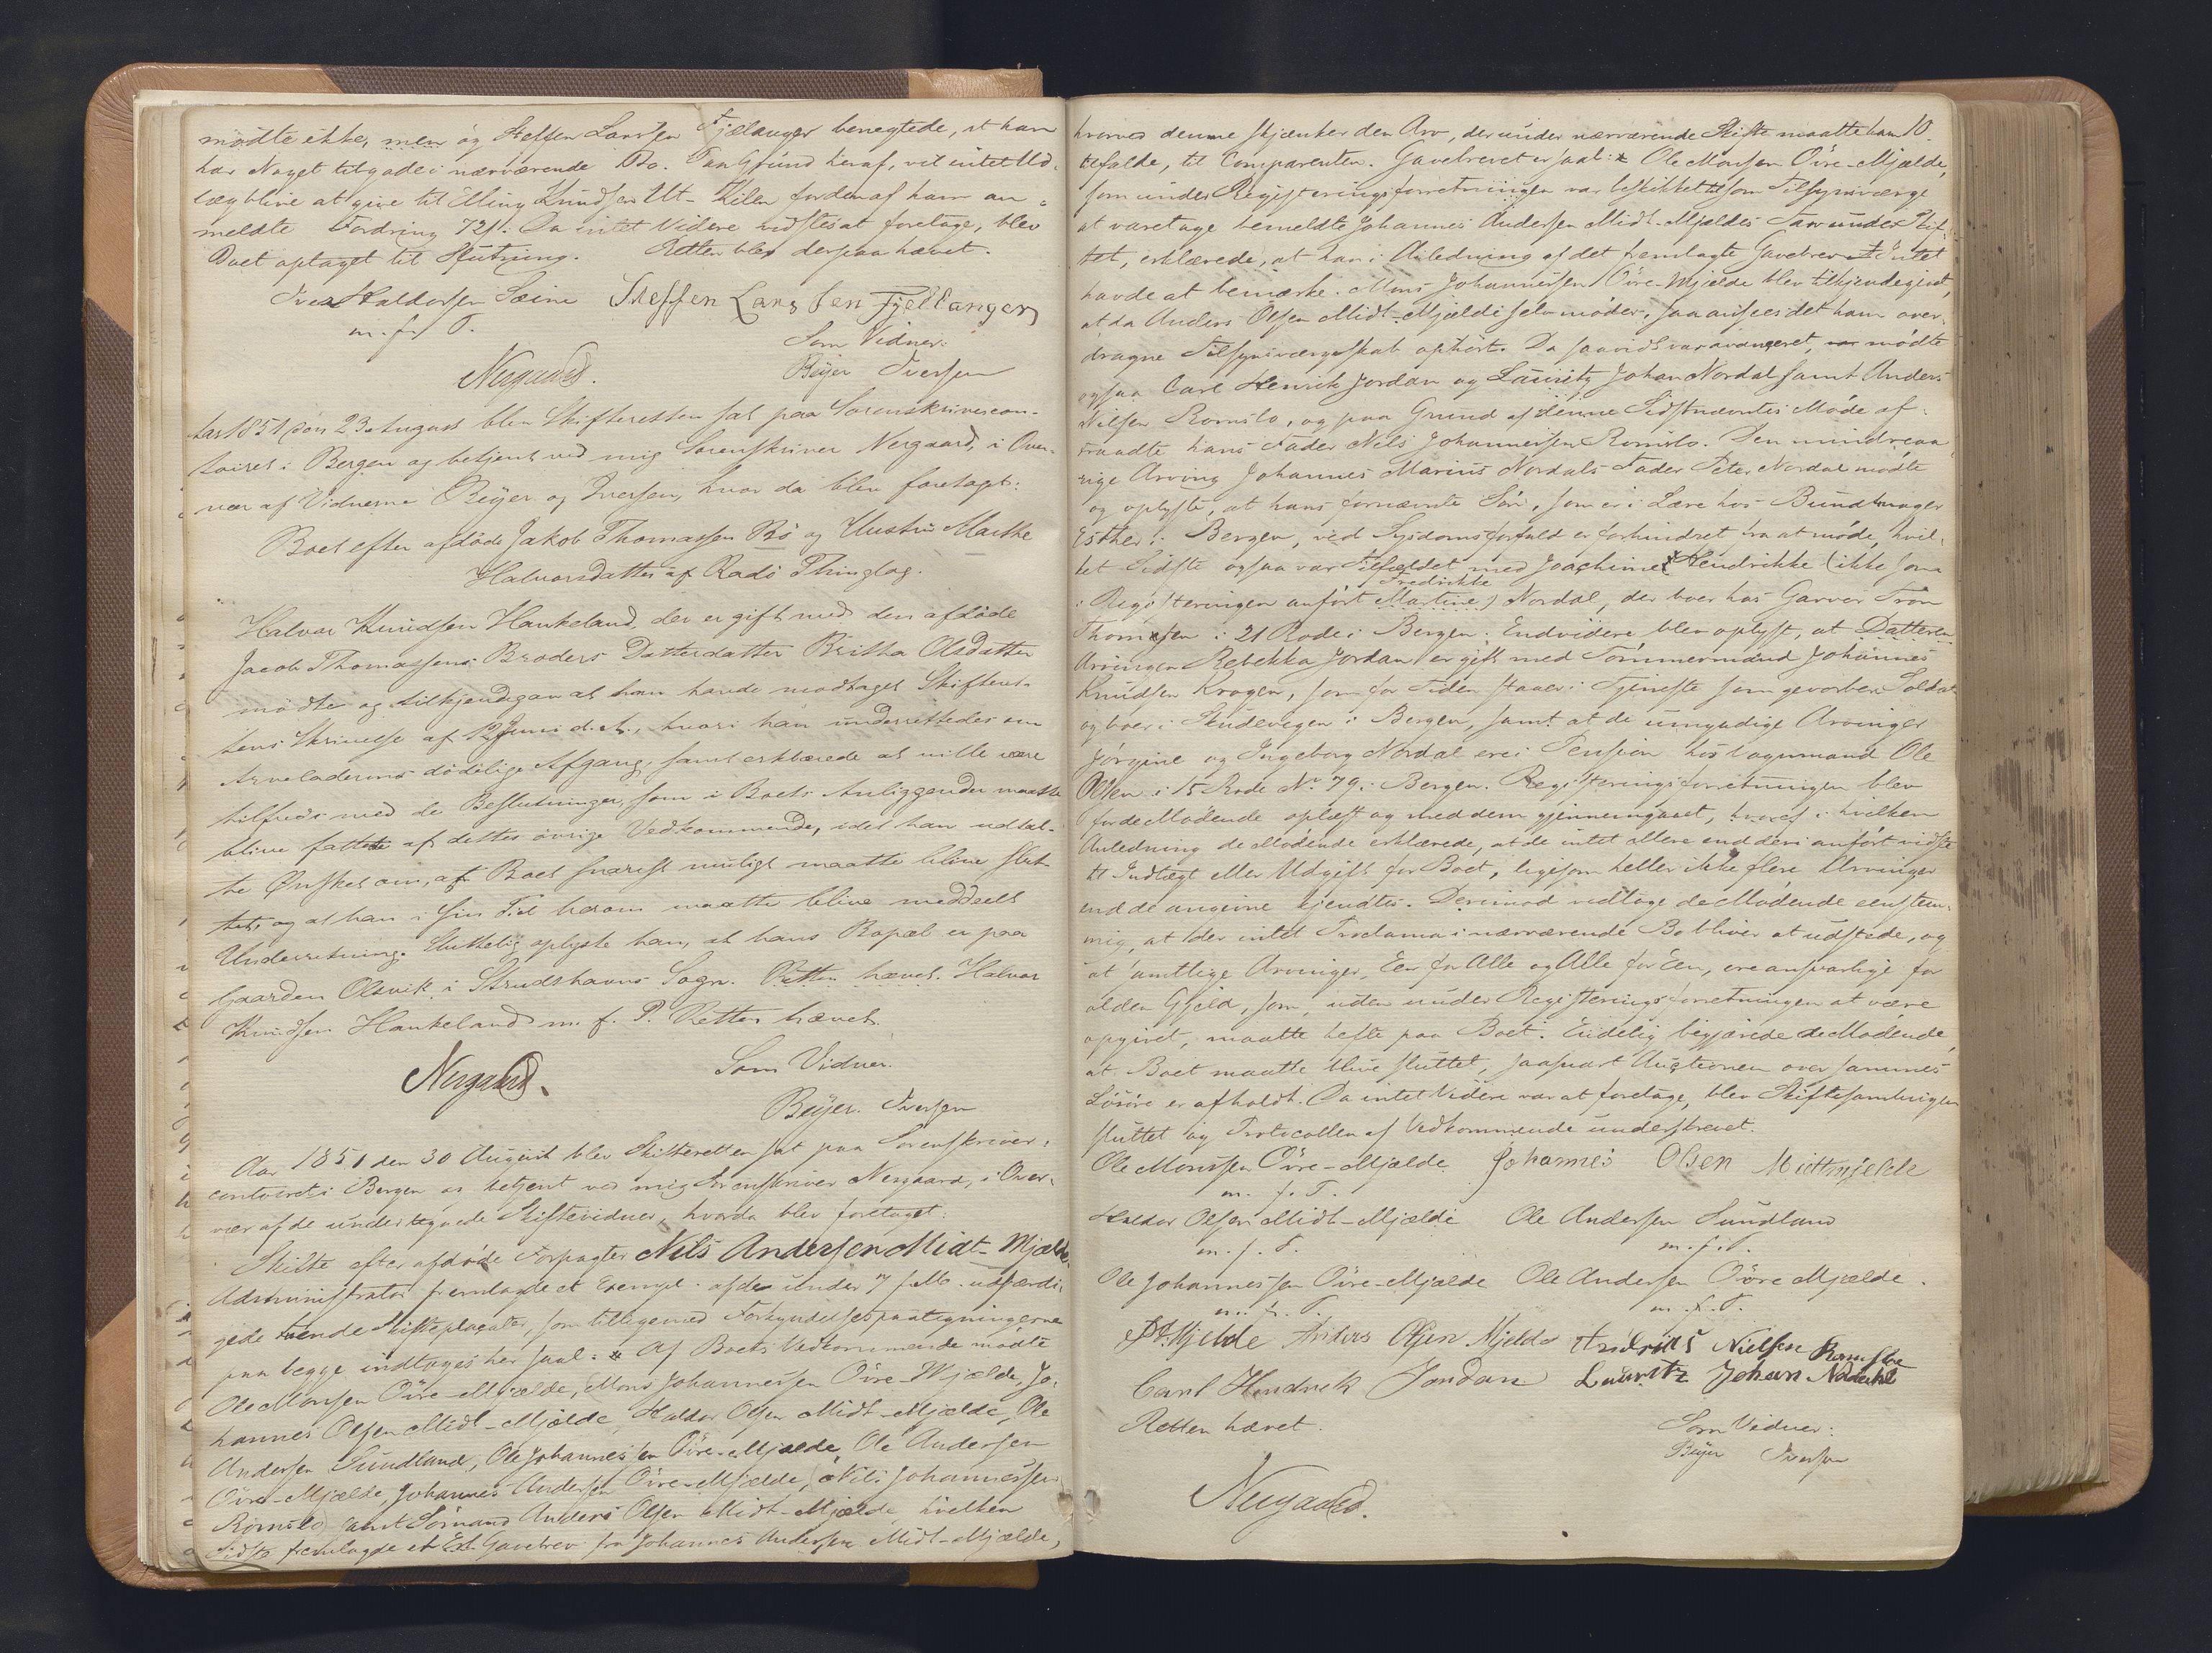 mødte ikke, men og Steffen Larssen Fjælanger benegtede, at han
har Noget tilgode i nærværende Bo. Paa Grund heraf, vil intet Ud-
læg blive at give til Elling Knudsen Ut-Kilen for den af ham an-
meldte Fordring 72 f. Da intet Videre vidstes at foretage, blev
Boet optaget til Slutning. Retten blev derpaa hævet.
Iver Haldorsen Sæim Steffen Larssen Fjellanger
m. f. P.
Som Vidner:
Nergaard. Beyer Iversen
Aar 1851 den 23 August blev Skifteretten sat paa Sorenskrivercon-
toiret i Bergen og betjent ved mig Sorenskriver Nergaard, i Over-
vær af Vidnerne Beyer og Iversen, hvor da blev foretaget:
Boet efter afdøde Jakob Thomassen Bø og Hustru Marthe
Halvorsdatter af Radø Thinglag.
Halvor Knudsen Haukeland, der er gift med den afdøde
Jacob Thomassens Broders Datterdatter Britha Olsdatter
mødte og tilkjendegav at han havde modtaget Skifteret-
tens Skrivelse af 12 Juni d. A., hvori han underrettedes om
Arveladerens dødelige Afgang, samt erklærede at ville være
tilfreds med de Beslutninger, som i Boets Anliggender maatte
blive fattede af dettes øvrige Vedkommende, idet han udtal-
te Ønsket om, at Boet snarest muligt maatte blive slut-
tet, og at han i sin Tid herom maatte blive meddeelt
Underretning. Sluttelig oplyste han, at hans Bopæl er paa
Gaarden Olsvik i Strudshavns Sogn. Retten hævet. Halvor
Knudsen Haukeland m. f. P. Retten hævet.
Nergaard. Som Vidner.
Beyer. Iversen
Aar 1851 den 30 August blev Skifteretten sat paa Sorenskriver-
contoiret i Bergen og betjent ved mig Sorenskriver Nergaard, i Over-
vær af de undertegnede Skiftevidner, hvorda blev foretaget:
Skifte efter afdøde Forpagter Nils Andersen Midt-Mjælde.
Administrator fremlagde et Exempl. af de under 7 f. M. udfærdi-
gede tvende Skifteplacater, som tilligemed Forkyndelsespaategningerne
paa begge indtages her saal: * Af Boets Vedkommende mødte
Ole Monsen Øvre-Mjælde, Mons Johannessen Øvre-Mjælde, Jo-
hannes Olsen Midt-Mjælde, Haldor Olsen Midt-Mjælde, Ole
Andersen Sundland, Ole Johannessen Øvre-Mjælde, Ole Andersen
Øvre-Mjælde, Johannes Andersen Øvre-Mjælde, Nils Johannessen
Romslo samt Sømand Anders Olsen Midt-Mjælde, hvilken
Sidste fremlagde et Ext. Gavebrev fra Johannes Andersen Midt-Mjælde,
10.
hvorved denne skjænker den Arv, der under nærværende Skifte maatte ham
tilfalde, til Comparenten. Gavebrevet er saal: * Ole Monsen Øvre-Mjælde,
som under Registeringsforretningen var beskikket til som Tilsynsværge
at varetage bemeldte Johannes Andersen Midt-Mjældes Tarv under Skif-
tet, erklærede, at han i Anledning af det fremlagte Gavebrev Intet
havde at bemærke. Mons Johannessen Øvre-Mjelde blev tilkjendegivet,
at da Anders Olsen Midt-Mjælde selv møder, saa ansees det ham over-
dragne Tilsynsværgeskab ophørt. Da saavidt var avanceret, mødte
ogsaa Carl Henrik Jordan og Lauritz Johan Nordal samt Anders
Nilsen Romslo, og paa Grund af denne Sidstnævntes Møde af-
traadte hans Fader Nils Johannessen Romslo. Den mindreaa-
rige Arving Johannes Marius Nordals Fader Peter Nordal mødte
og oplyste, at hans fornævnte Søn, som er i Lære hos Bundtmager
Esther i Bergen, ved Sygdomsforfald er forhindret fra at møde, hvil-
ket Sidste ogsaa var Tilfældet med Joachime * Hendrikke (ikke som
Fredrikke
i Registeringen anført Martine) Nordal, der boer hos Garver Trøn
Thomesen i 21 Rode i Bergen. Endvidere blev oplyst, at Datteren
Arvingen Rebekka Jordan er gift med Tømmermand Johannes
Knudsen Kragen, som for Tiden staaer i Tjeneste som gevorben Soldat
og boer i Skudevigen i Bergen, samt at de umyndige Arvinger
Jørgine og Ingeborg Nordal ere i Pension hos Laugumand Ole
Olsen i 15 Rode No 79 i Bergen. Registeringsforretningen blev
for de Mødende oplæst og med dem gjennemgaaet, i hvilken
Anledning de Mødende erklærede, at de intet Mere end deri anført vidste
til Indtægt eller Udgift for Boet, ligesom heller ikke flere Arvinger
end de angivne kjendtes. Derimod vedtoge de Mødende eenstem-
mig, at der intet Proclama i nærværende Bo bliver at udstede, og
at samtlige Arvinger, Een for Alle og Alle for Een, ere ansvarlige for
al den Gjeld, som, uden under Registeringsforretningen at være
opgivet, maatte hefte paa Boet. Endelig begjærede de Mødende,
at Boet maatte blive sluttet, saasnart Auctionen over sammes
Løsøre er afholdt. Da intet Videre var at foretage, blev Skiftesamlingen
sluttet og Protocollen af Vedkommende underskrevet.
Ole Monssen Øvre-Mjelde. Johannes Olsen Midtmjelde
m. f. P.
Haldor Olsen Midt-Mjælde Ole Andersen Sundland
m. f. P. m. f. P.
Ole Johannessen Øvre-Mjælde Ole Andersen Øvre Mjælde.
m. f. P. m. f. P.
Mjelde Anders Olsen Mjelde Andreas Nielsen Romsloe
Carl Hendrick Jordan Lauritz Johan Nordahl
Retten hævet. Som Vidner:
Beyer Iversen
Nergaard.